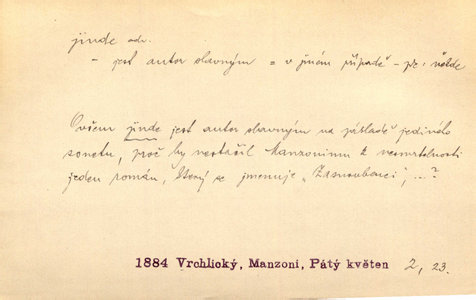 jinde adv.
- jest autor slavným = v jiném případě -
Ovšem jinde jest autor slavným na základě jediného
sonetu, proč by nestačil Manzonimu k nesmrtelnosti
jeden román, který se jmenuje „Zasnoubenci“, ...?
1884 Vrchlický, Manzoni, Pátý květen 2, 23.